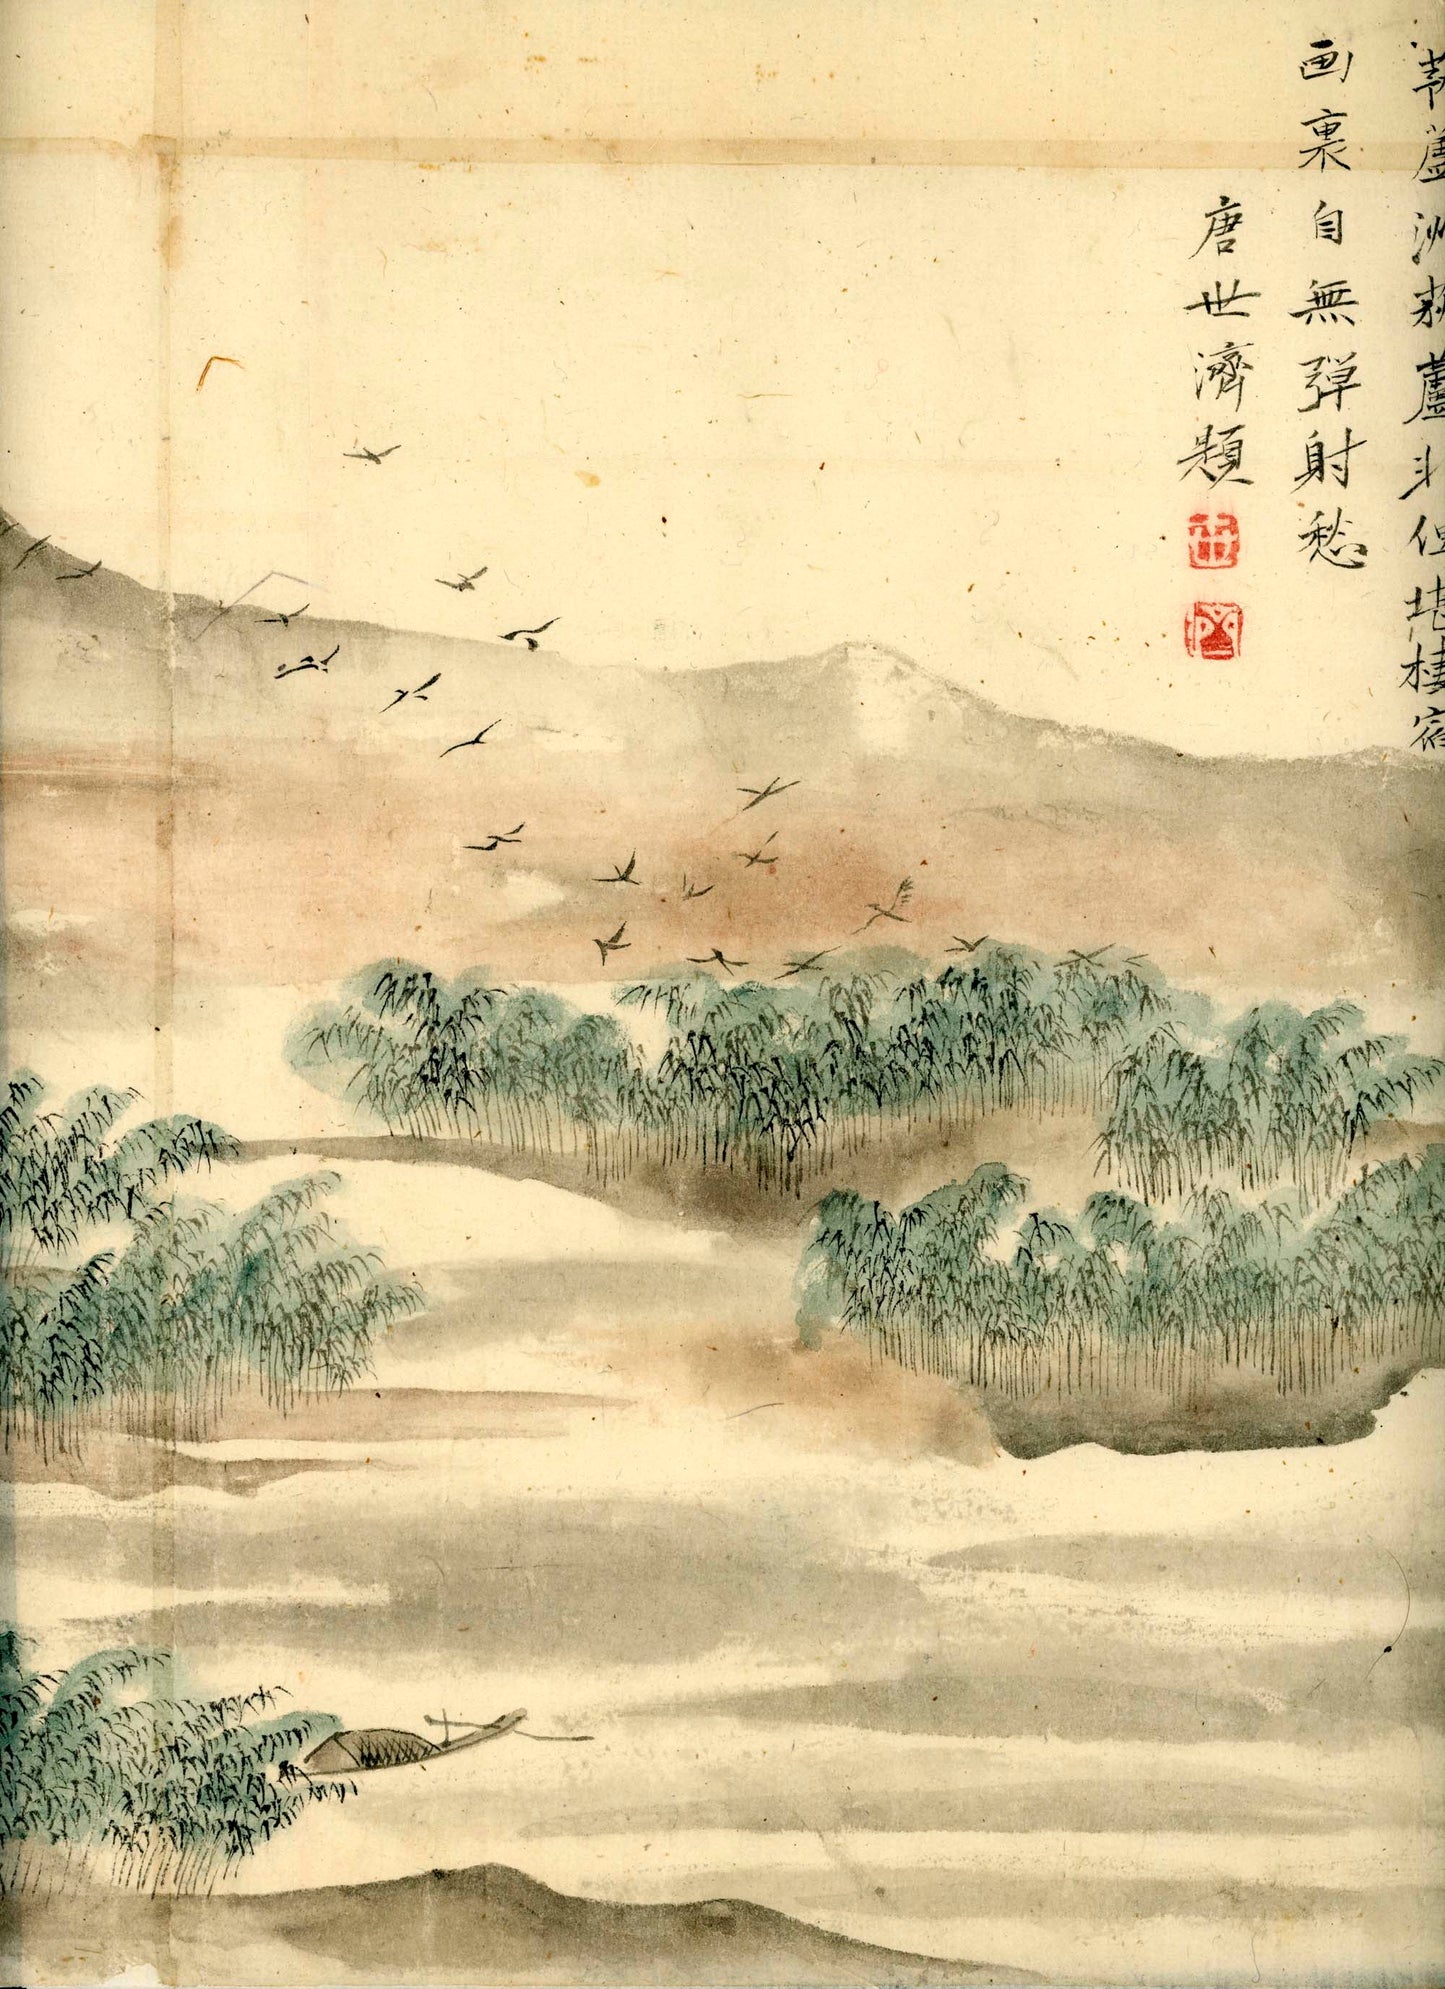 蘆洲荻蘆但堪棲宿
画裏自無彈射愁
唐世濟題